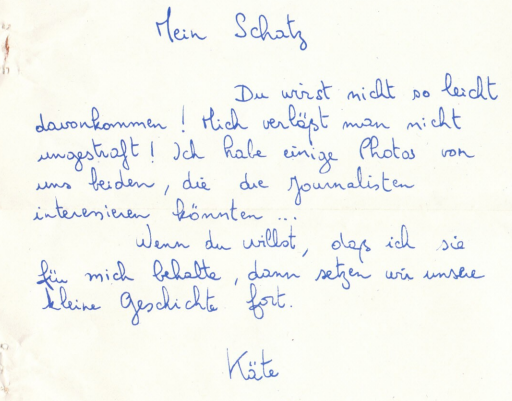 Mein Schatz
Du wirst nicht so leicht
davonkommen! Mich verläßt man nicht
ungestraft! Ich habe einige Photos von
uns beiden, die die Journalisten
interessieren könnten...
Wenn du willst, daß ich sie
für mich behalte, dann setzen wir unsere
kleine Geschichte fort.
Käte